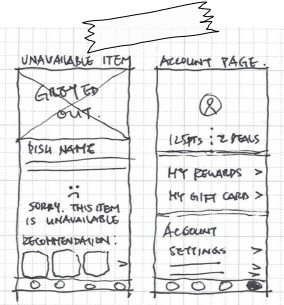 UNAVAILABLE ITEM
GREYED
OUT.
DISH NAME
:(
SORRY, THIS ITEM
IS UNAVAILABLE
RECOMMENDATION:
>
ACCOUNT PAGE.
125PTS : 2 DEALS
MY REWARDS >
MY GIFT CARD >
ACCOUNT
SETTINGS >